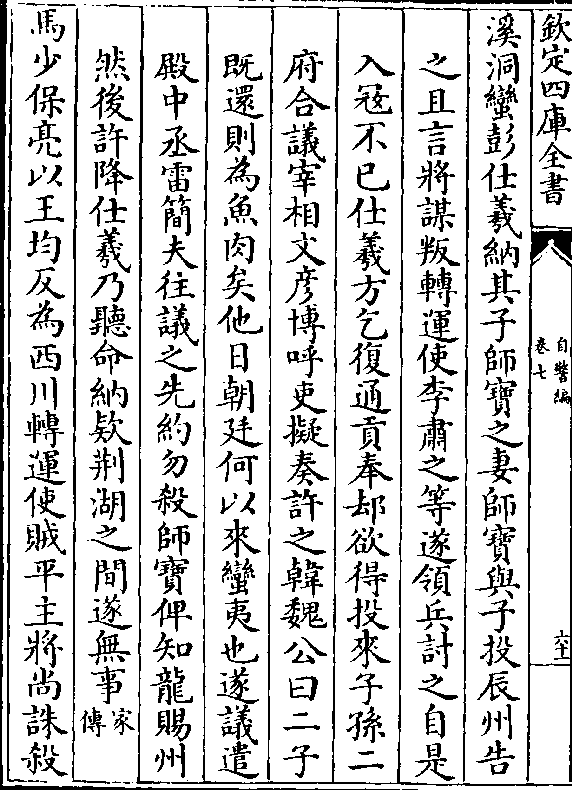 欽定四庫全書
自警編
卷七
六十二
溪洞蠻彭仕羲納其子師寶之妻師寶與子投辰州告
之且言將謀叛轉運使李肅之等遂領兵討之自是
入寇不已仕羲方乞復通貢奉却欲得投來子孫二
府合議宰相文彥博呼吏擬奏許之韓魏公曰二子
既還則為魚肉矣他日朝廷何以來蠻夷也遂議遣
殿中丞雷簡夫往議之先約勿殺師寶俾知龍賜州
然後許降仕羲乃聽命納欵荆湖之間遂無事家傳
馬少保亮以王均反為西川轉運使賊平主將尚誅殺